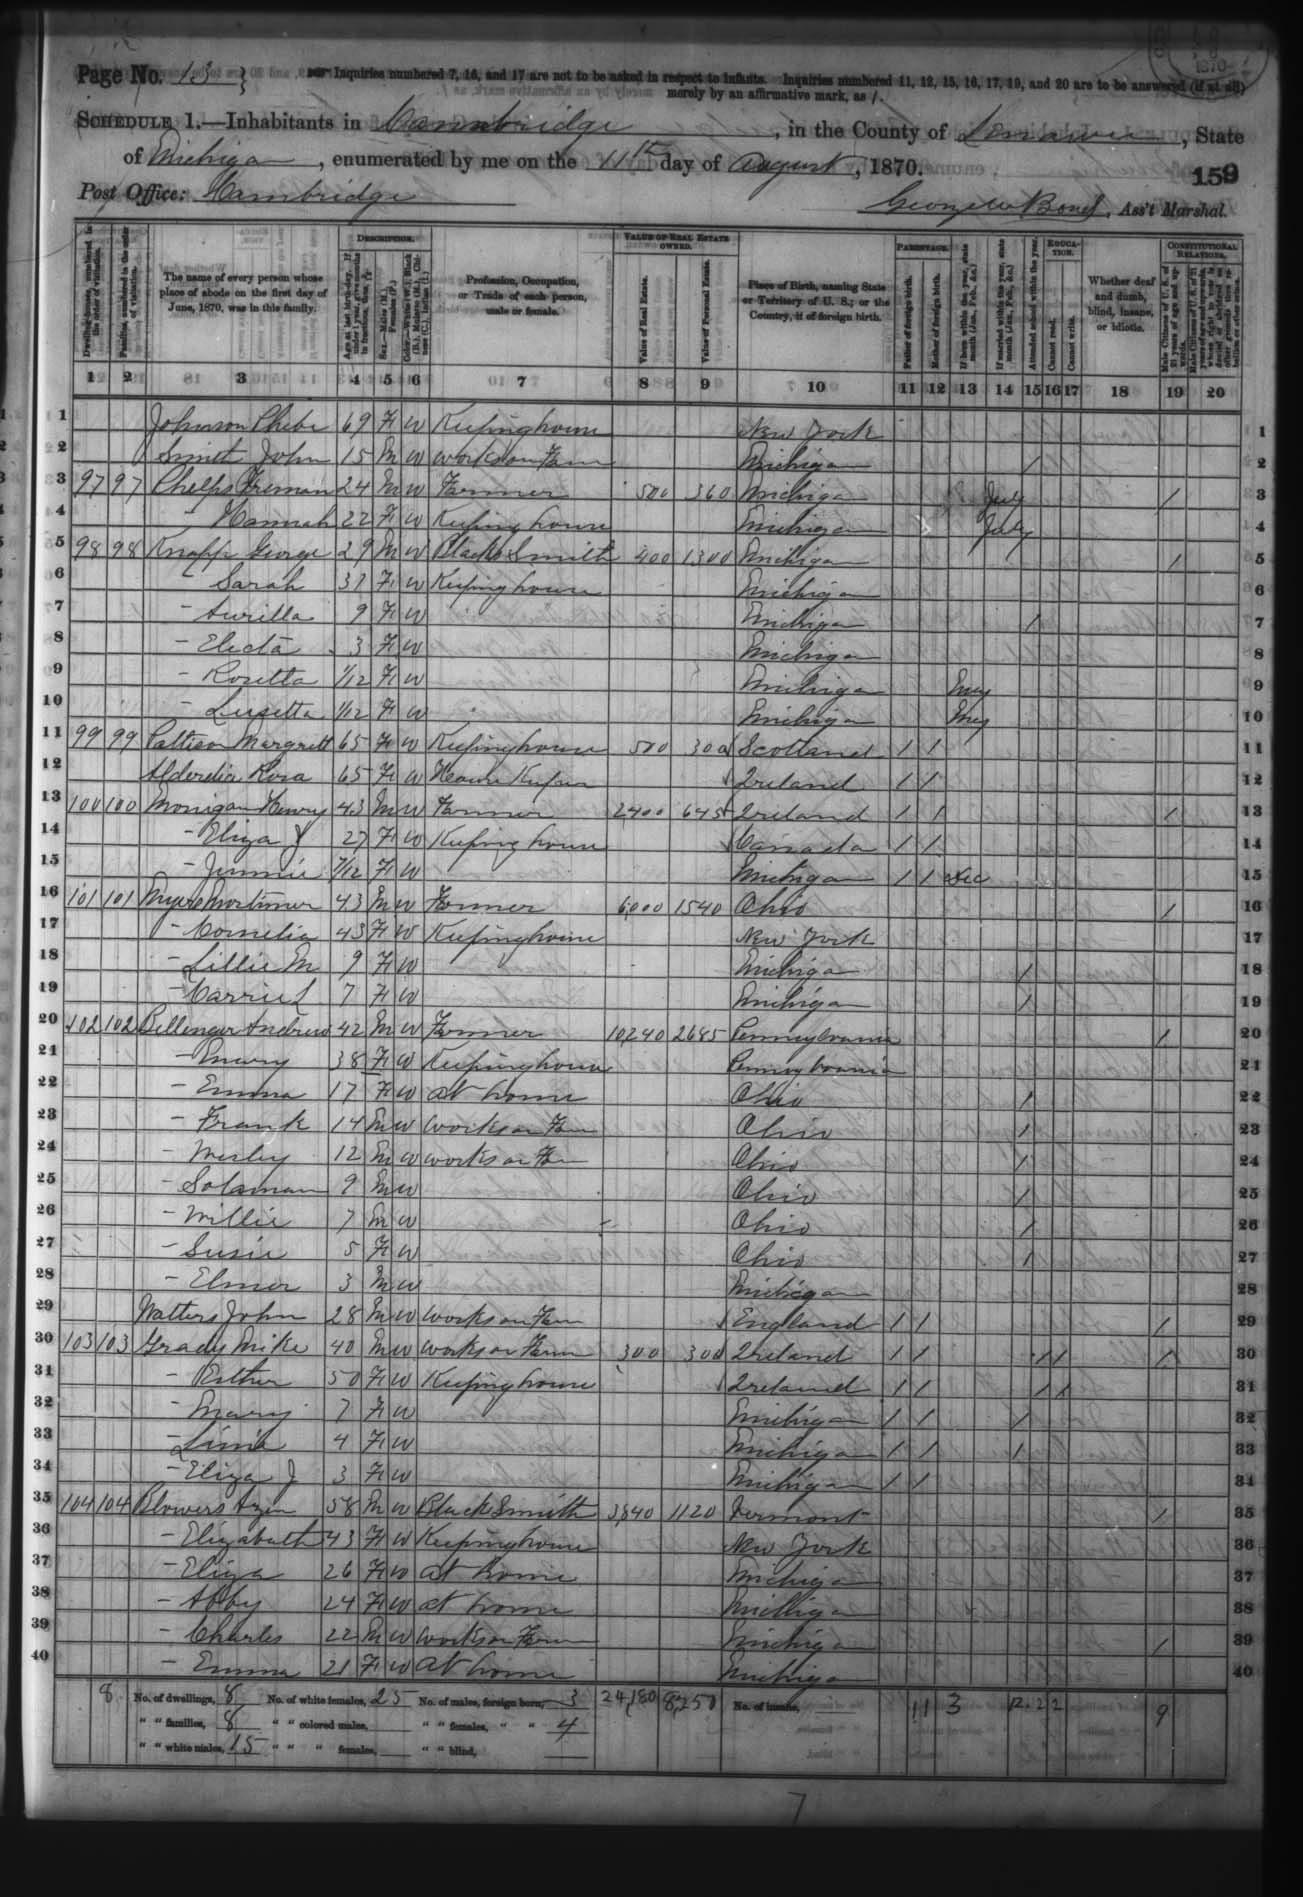 Page No. 13 } Inquiries numbered 7, 16, and 17 are not to be asked in respect to infants. Inquiries numbered 11, 12, 15, 16, 17, 19, and 20 are to be answered (if at all) merely by an affirmative mark, as /.
SCHEDULE 1.—Inhabitants in Cambridge, in the County of Lenawee, State
of Michigan, enumerated by me on the 11th day of August, 1870.
159
Post Office: Cambridge
George W Bowd, Ass't Marshal.
DESCRIPTION. VALUE OF REAL ESTATE OWNED. PARENTAGE. EDUCATION. CONSTITUTIONAL RELATIONS.
Dwelling-houses, numbered in the order of visitation.
Families, numbered in the order of visitation.
The name of every person whose place of abode on the first day of June, 1870, was in this family.
Age at last birth-day. If under 1 year, give months in fractions, thus, 3/12
Sex.—Males (M.), Females (F.)
Color.—White (W.), Black (B.), Mulatto (M.), Chinese (C.), Indian (I.)
Profession, Occupation, or Trade of each person, male or female.
Value of Real Estate.
Value of Personal Estate.
Place of Birth, naming State or Territory of U. S.; or the Country, if of foreign birth.
Father of foreign birth.
Mother of foreign birth.
If born within the year, state month (Jan., Feb., &c.)
If married within the year, state month (Jan., Feb., &c.)
Attended school within the year.
Cannot read.
Cannot write.
Whether deaf and dumb, blind, insane, or idiotic.
Male Citizens of U. S. of 21 years of age and upwards.
1 2 3 4 5 6 7 8 9 10 11 12 13 14 15 16 17 18 19 20
1 Johnson Phebe 69 F W Keeping house New York 1
2 Smith John 15 M W works on Farm Michigan / 2
3 97 97 Phelps Freman 24 M W Farmer 500 360 Michigan July / 3
4 - Hannah 22 F W Keeping house Michigan July 4
5 98 98 Knapp George 29 M W Black Smith 400 1300 Michigan / 5
6 - Sarah 31 F W Keeping house Michigan 6
7 - Aurilla 9 F W Michigan / 7
8 - Electa 3 F W Michigan 8
9 - Rosetta 1/12 F W Michigan May 9
10 - Lusetta 1/12 F W Michigan May 10
11 99 99 Pattison Margrett 65 F W Keeping house 500 300 Scotland / / 11
12 Rosa 65 F W House Keeper Ireland / / 12
13 100 100 Monigan Henry 43 M W Farmer 2400 645 Ireland / / / 13
14 - Eliza J 27 F W Keeping house Canada / / 14
15 - Jennie 7/12 F W Michigan / / Dec 15
16 101 101 Myers Mortimer 43 M W Farmer 6,000 1540 Ohio / 16
17 - Cornelia 43 F W Keeping house New York 17
18 - Lillie M 9 F W Michigan / 18
19 - Carrie L 7 F W Michigan / 19
20 102 102 Bellenger Andrew 42 M W Farmer 10,240 2685 Pennsylvania / 20
21 - Mary 38 F W Keeping house Pennsylvania 21
22 - Emma 17 F W at home Ohio / 22
23 - Frank 14 M W works on Farm Ohio / 23
24 - Wesley 12 M W works on Farm Ohio / 24
25 - Soloman 9 M W Ohio / 25
26 - Willie 7 M W Ohio / 26
27 - Susie 5 F W Ohio / 27
28 - Elmer 3 M W Michigan 28
29 Watters John 28 M W works on Farm England / / / 29
30 103 103 Grady Mike 40 M W works on Farm 300 300 Ireland / / / / / 30
31 - Esther 50 F W Keeping house Ireland / / / / 31
32 - Mary 7 F W Michigan / / / 32
33 - 4 F W Michigan / / / 33
34 - Eliza J 3 F W Michigan / / 34
35 104 104 Blowers 58 M W Black Smith 3,840 1120 Vermont / 35
36 - Elizabeth 43 F W Keeping house New York 36
37 - Eliza 26 F W at home Michigan 37
38 - Abby 24 F W at home Michigan 38
39 - Charles 22 M W works on Farm Michigan / 39
40 - Emma 21 F W at home Michigan 40
8 No. of dwellings, 8 No. of white females, 25 No. of males, foreign born, 3 24,180 8,250 No. of insane, 11 3 12 2 2 9
" " families, 8 " " colored males, " " females, " " 4
" " white males, 15 " " " females, " " blind,
7